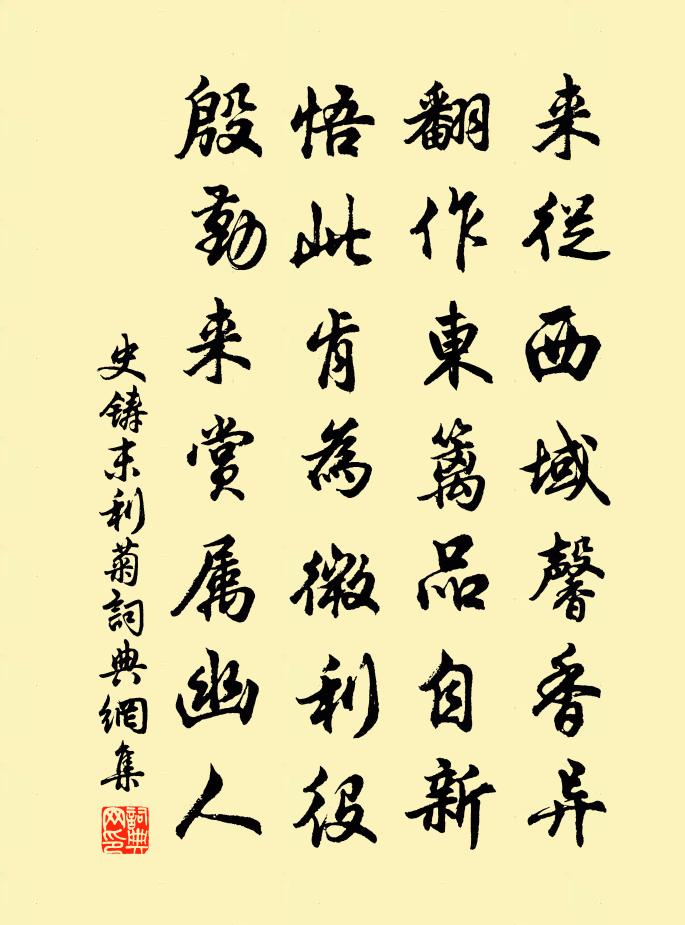 来從西域馨香异
翻作東篱品自新
悟此肯為微利役
殷勤来赏属幽人
史鋳末利菊詞典網集
詞典网印